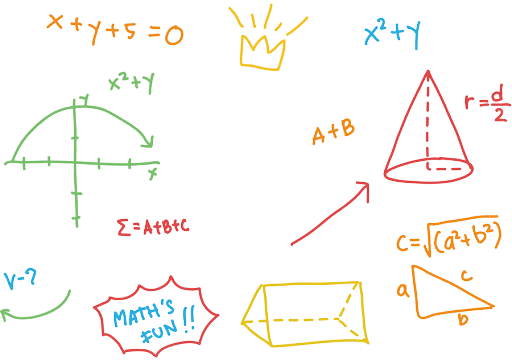 x+y+5=0
x²+y
x²+y
y
x
r=d/2
A+B
Σ=A+B+C
c=√(a²+b²)
a
c
b
V-?
MATH'S
FUN!!